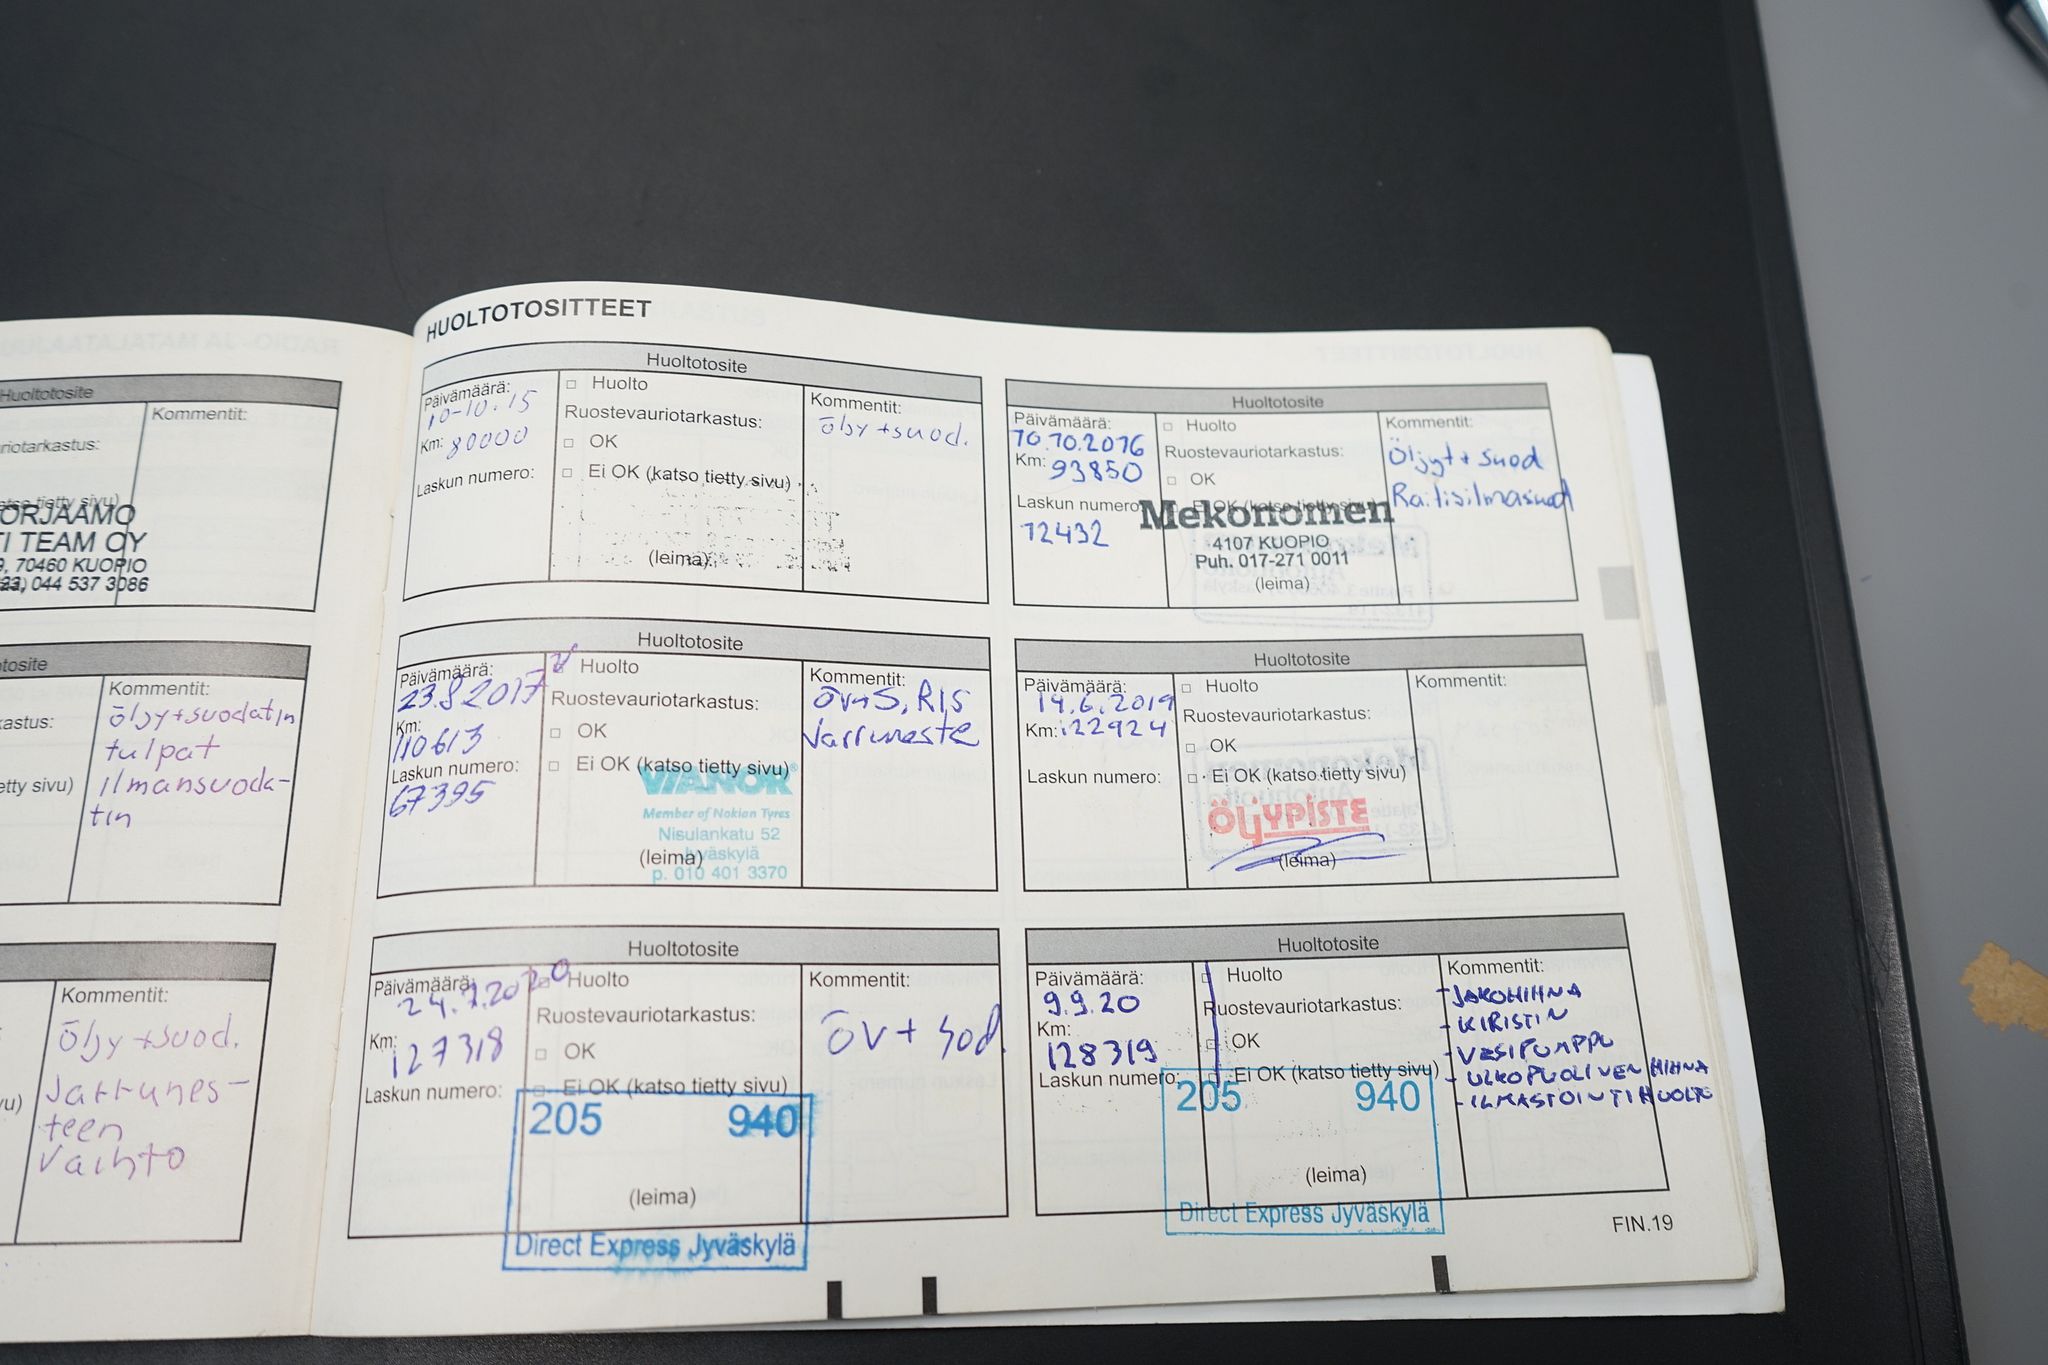 Huoltotosite
Kommentit:
riotarkastus:
atso tietty sivu)
ORJAAMO
I TEAM OY
9, 70460 KUOPIO
23, 044 537 3086
tosite
Kommentit:
öljy+suodatin
tulpat
ilmansuoda-
tin
kastus:
etty sivu)
Kommentit:
öljy+suod.
Jarrunes-
teen
vaihto
vu)
HUOLTOTOSITTEET
Huoltotosite
Päivämäärä:
10-10.15
Km: 80000
Laskun numero:
□ Huolto
Ruostevauriotarkastus:
□ OK
□ Ei OK (katso tietty sivu)
(leima)
Kommentit:
öljy+suod.
Huoltotosite
Päivämäärä:
10.10.2016
Km: 93850
Laskun numero:
12432
□ Huolto
Ruostevauriotarkastus:
□ OK
□ Ei OK (katso tietty sivu)
Mekonomen
4107 KUOPIO
Puh. 017-271 0011
(leima)
Kommentit:
Öljyt+suod
Raitisilmasuod
Huoltotosite
Päivämäärä:
23.8.2017
Km:
110613
Laskun numero:
67395
□ Huolto
Ruostevauriotarkastus:
□ OK
□ Ei OK (katso tietty sivu)
VIANOR
Member of Nokian Tyres
Nisulankatu 52
(leima) Jyväskylä
p. 010 401 3370
Kommentit:
öv+S, RIS
Jarruneste
Huoltotosite
Päivämäärä:
14.6.2019
Km: 122924
Laskun numero:
□ Huolto
Ruostevauriotarkastus:
□ OK
□ Ei OK (katso tietty sivu)
ÖLJYPISTE
(leima)
Kommentit:
Huoltotosite
Päivämäärä:
24.7.2020
Km:
127318
Laskun numero:
□ Huolto
Ruostevauriotarkastus:
□ OK
□ Ei OK (katso tietty sivu)
205 940
(leima)
Direct Express Jyväskylä
Kommentit:
öv+sod.
Huoltotosite
Päivämäärä:
9.9.20
Km:
128319
Laskun numero:
□ Huolto
Ruostevauriotarkastus:
□ OK
□ Ei OK (katso tietty sivu)
205 940
(leima)
Direct Express Jyväskylä
Kommentit:
- JAKOHIHNA
- KIRISTIN
- VESIPUMPPU
- ULKOPUOLINEN HIHNA
- ILMASTOINTIHUOLTO
FIN.19